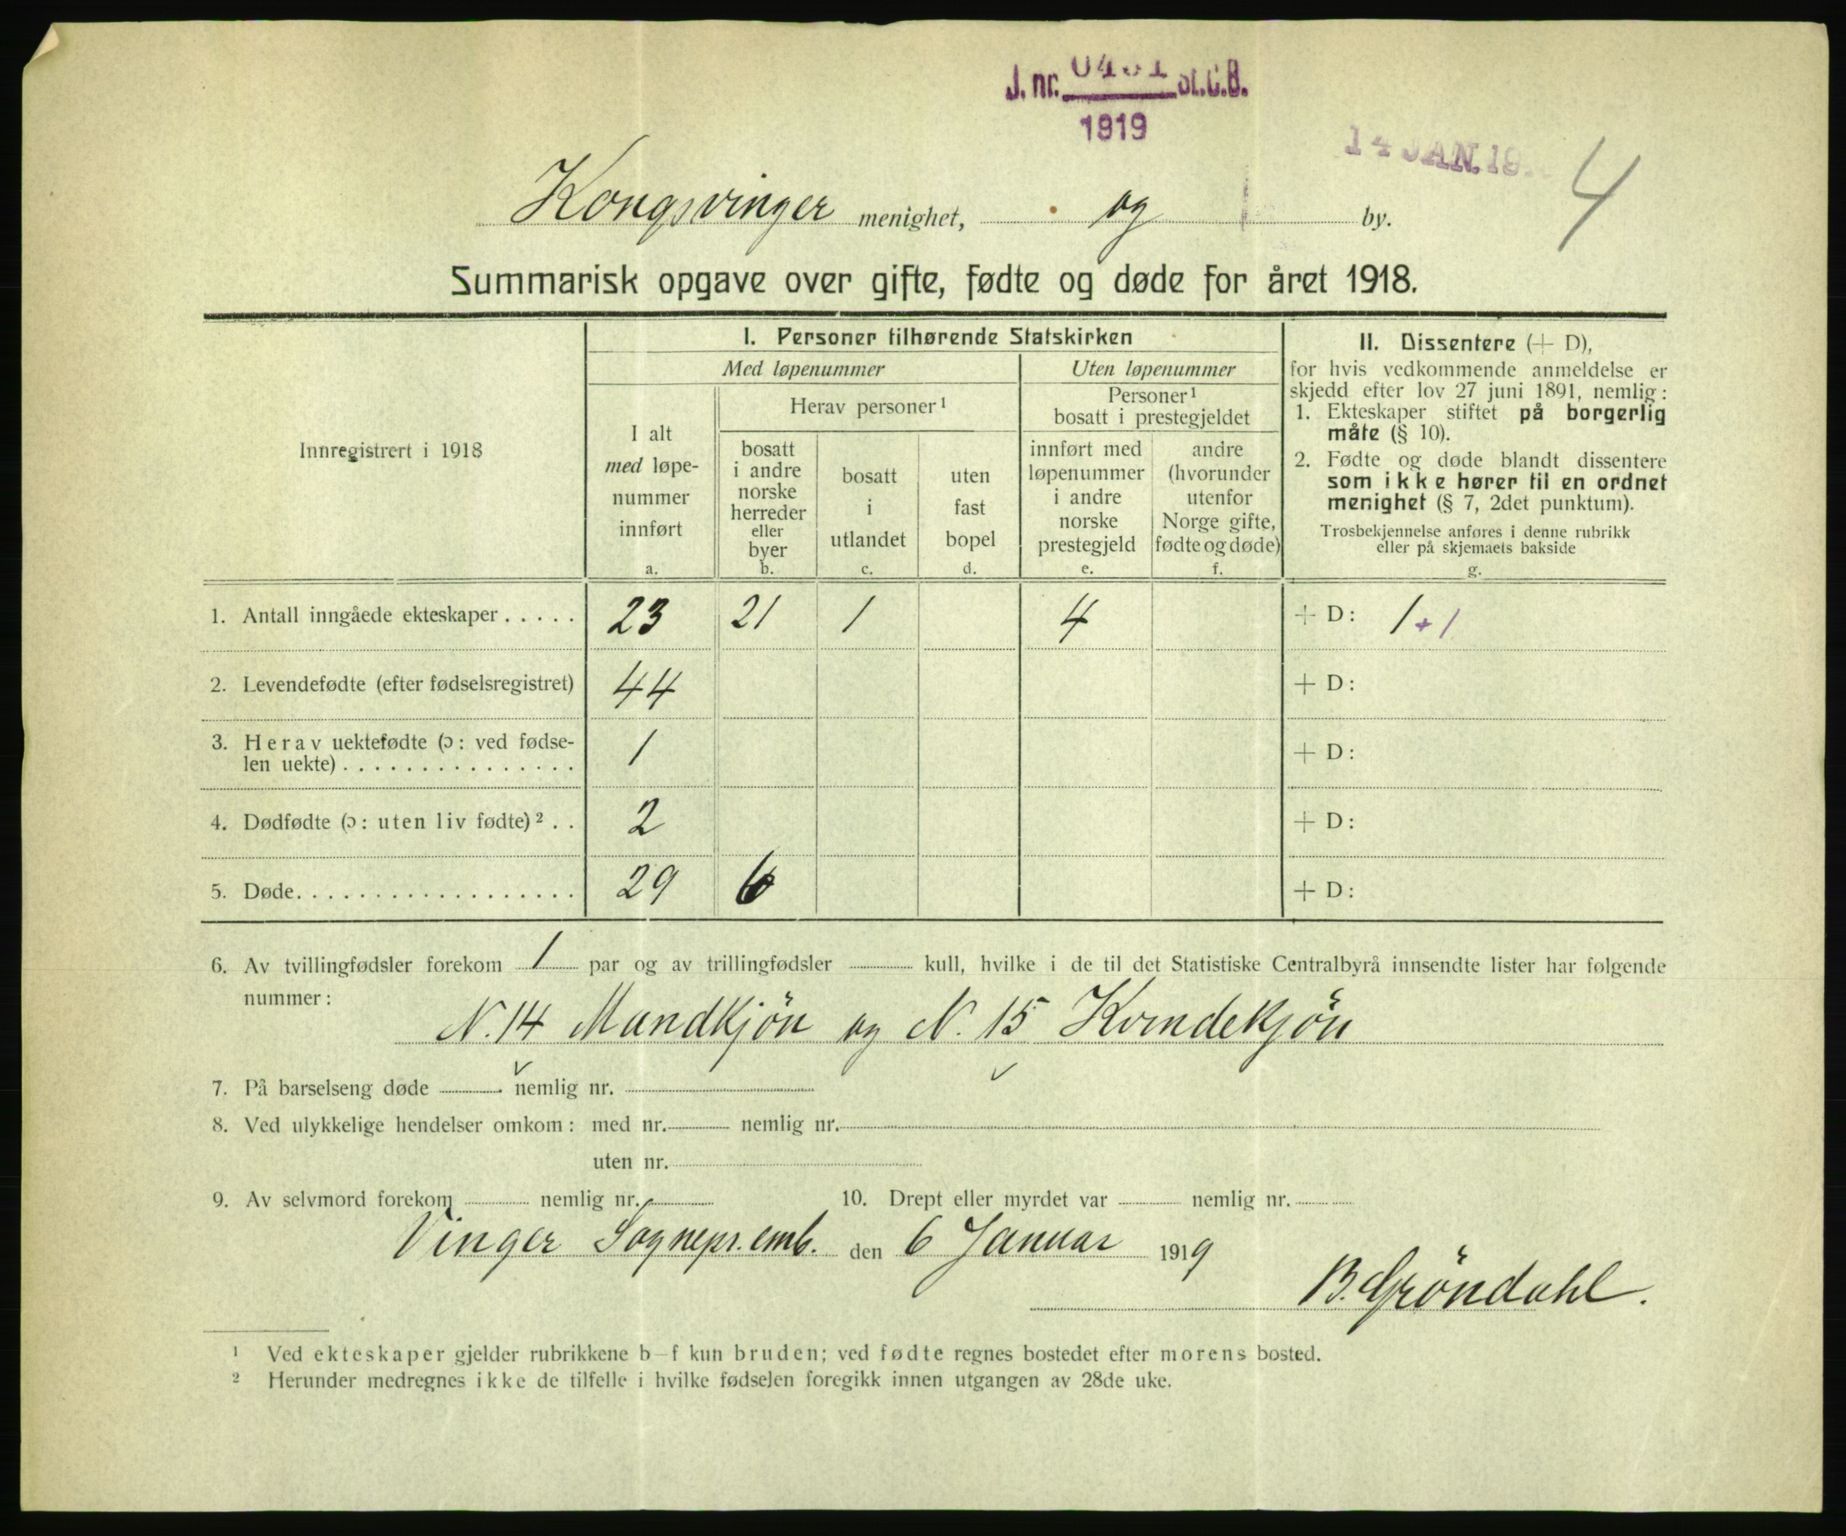 J. nr. St.C.B.
1919
14 JAN. 19
4
Kongsvinger menighet, og by.
Summarisk opgave over gifte, fødte og døde for året 1918.
Innregistrert i 1918
I. Personer tilhørende Statskirken
Med løpenummer
Uten løpenummer
I alt
med løpe-
nummer
innført
a.
Herav personer ¹
bosatt
i andre
norske
herreder
eller
byer
b.
bosatt
i
utlandet
c.
uten
fast
bopel
d.
Personer ¹
bosatt i prestegjeldet
innført med
løpenummer
i andre
norske
prestegjeld
e.
andre
(hvorunder
utenfor
Norge gifte,
fødte og døde)
f.
II. Dissentere (+ D),
for hvis vedkommende anmeldelse er
skjedd efter lov 27 juni 1891, nemlig:
1. Ekteskaper stiftet på borgerlig
måte (§ 10).
2. Fødte og døde blandt dissentere
som ikke hører til en ordnet
menighet (§ 7, 2det punktum).
Trosbekjennelse anføres i denne rubrikk
eller på skjemaets bakside
g.
1. Antall inngåede ekteskaper . . . . . 23 21 1 4 + D: 1 + 1
2. Levendefødte (efter fødselsregistret) 44 + D:
3. Herav uektefødte (ɔ: ved fødse-
len uekte) . . . . . . . . . . . . . . . 1 + D:
4. Dødfødte (ɔ: uten liv fødte) ² . . 2 + D:
5. Døde. . . . . . . . . . . . . . . . . . 29 6 + D:
6. Av tvillingfødsler forekom 1 par og av trillingfødsler kull, hvilke i de til det Statistiske Centralbyrå innsendte lister har følgende
nummer:
N. 14 Mandkjön og N. 15 Kvindekjön
7. På barselseng døde nemlig nr.
8. Ved ulykkelige hendelser omkom: med nr. nemlig nr.
uten nr.
9. Av selvmord forekom nemlig nr. 10. Drept eller myrdet var nemlig nr.
Vinger Sognepr.emb. den 6 Januar 1919
B. Gröndahl.
¹ Ved ekteskaper gjelder rubrikkene b–f kun bruden; ved fødte regnes bostedet efter morens bosted.
² Herunder medregnes ikke de tilfelle i hvilke fødselen foregikk innen utgangen av 28de uke.